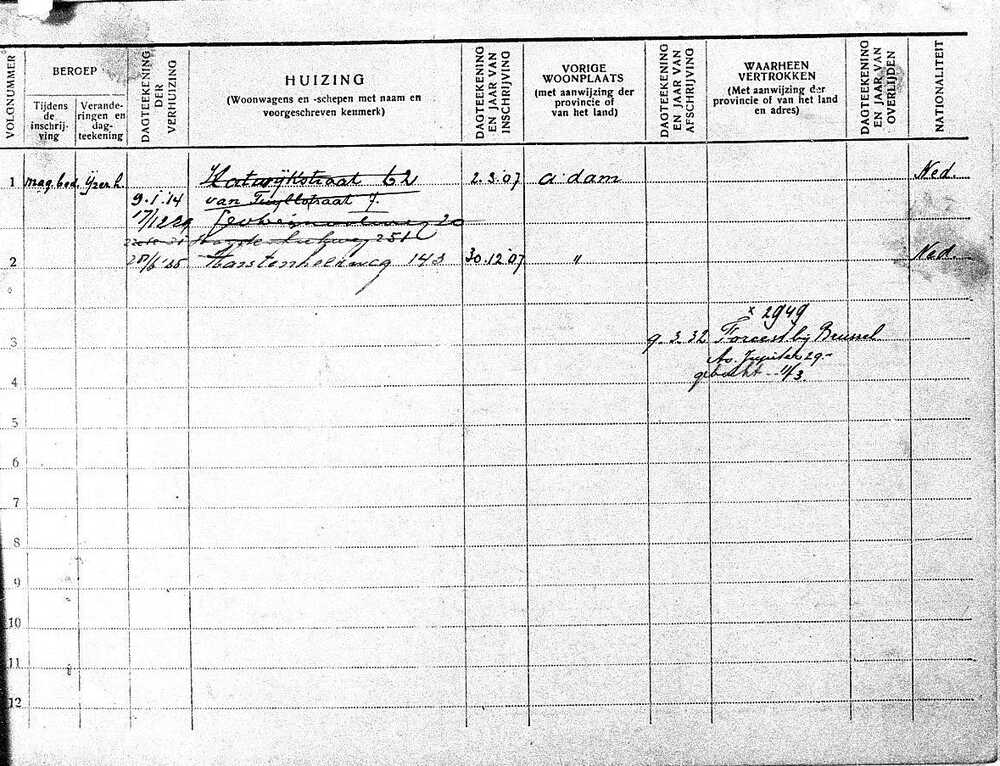 VOLGNUMMER
BEROEP
Tijdens de inschrij- ving
Verande- ringen en dag- teekening
DAGTEEKENING DER VERHUIZING
HUIZING
(Woonwagens en -schepen met naam en
voorgeschreven kenmerk)
DAGTEEKENING EN JAAR VAN INSCHRIJVING
VORIGE WOONPLAATS
(met aanwijzing der provincie of van het land)
DAGTEEKENING EN JAAR VAN AFSCHRIJVING
WAARHEEN VERTROKKEN
(Met aanwijzing der provincie of van het land en adres)
DAGTEEKENING EN JAAR VAN OVERLIJDEN
NATIONALITEIT
1 mag.bed. ijzerh. Katwijkstraat 62 2.3.07 A'dam Ned.
9.1.14 van Tuyllstraat
17/12 29 20
251
2 '35 143 30.12.07 " Ned.
x 2949
3 9.3.32 Forest bij Brussel
Av. Jupiter 29
4 11/3.
5
6
7
8
9
10
11
12